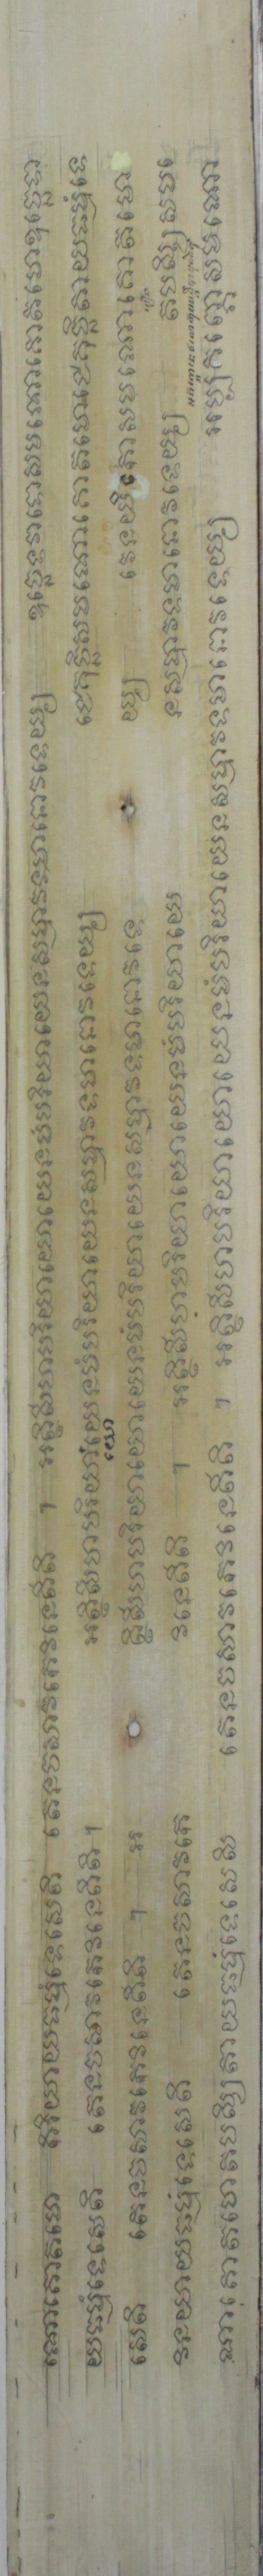 ណោគោតមោ កិរិយាយធម្មំទេសេតិ តេនចសាវកេវិនេតីតិ ។ អត្ថិសីហបរិយាយោយេនមំបរិយាយេនសម្មាវទមានោវទេយ្យ ឧច្ឆេទវាទោសមណោគោតមោឧច្ឆេទា
យធម្មំទេសេតិ តេនចសាវកេវិនេតីតិ។ អត្ថិសីហបរិយាយេនមំបរិយាយេនសម្មាវទមានោវទេយ្យ ជេគុច្ឆីសមណោគោតមោជេគុច្ឆិតាយធម្មំទេ
យោ
សេតិ តេនចសាវកេវិនេតីតិ ។ អ ត្ថិសីហបរិយាយោយេនមំបរិយាយេនសម្មាវទមានោវទេ យ្យ វេនយិកោសមណោគោតមោ
វិនយាយធម្មំទេសេតិ តេនចសាវកេ វិនេតីតិ ។ អត្ថិសីហបរិយាយោយេនមំបរិយាយេ នសម្មាវទមានោវទេយ្យ តបស្សីសមេ
ណាគោតមោតបស្សិតាយធម្មំទេសេតិ តេនចសាវកេវិនេតីតិ ។ អត្ថិសីហបរិយាយោយេនមំបរិយាយេនសម្មាវទមានោវទេយ្យ អប្បគព្ភោសមណោ